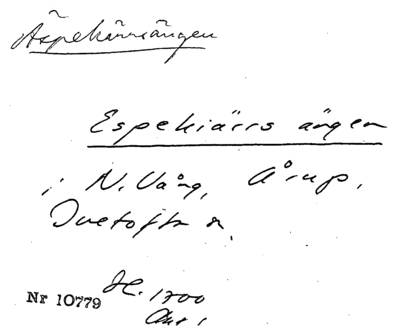 Äspekärrsängen
Espekiärrs ängen
i N. Vång, Årup,
Ivetofta sn.
Nr 10779 H. 1700
Akt 1